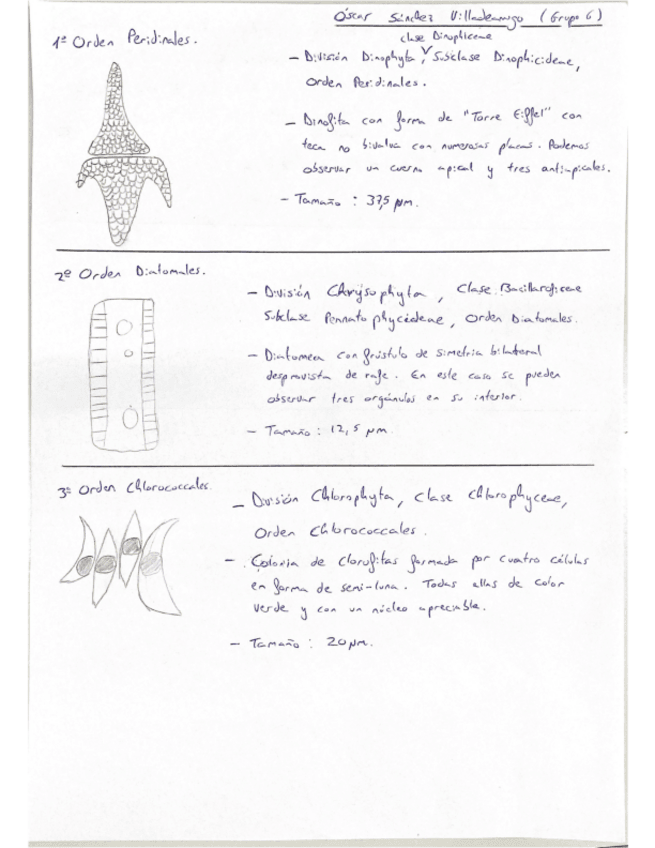 Óscar Sánchez Villadeamigo (Grupo 6)
1º Orden Peridinales.
clase Dinophiceae
- División Dinophyta, Subclase Dinophicideae,
Orden Peridinales.
- Dinofita con forma de "Torre Eiffel" con
teca no bivalva con numerosas placas. Podemos
observar un cuerno apical y tres antiapicales.
- Tamaño : 37,5 µm.
2º Orden Diatomales.
- División Chrysophyta, Clase Bacillaroficeae
Subclase Pennatophycideae, Orden Diatomales.
- Diatomea con frústulo de simetría bilateral
desprovista de rafe. En este caso se pueden
observar tres orgánulos en su interior.
- Tamaño : 12,5 µm
3º Orden Chlorococcales.
- División Chlorophyta, Clase Chlorophyceae,
Orden Chlorococcales.
- Colonia de clorofitas formada por cuatro células
en forma de semi-luna. Todas ellas de color
verde y con un núcleo apreciable.
- Tamaño : 20 µm.